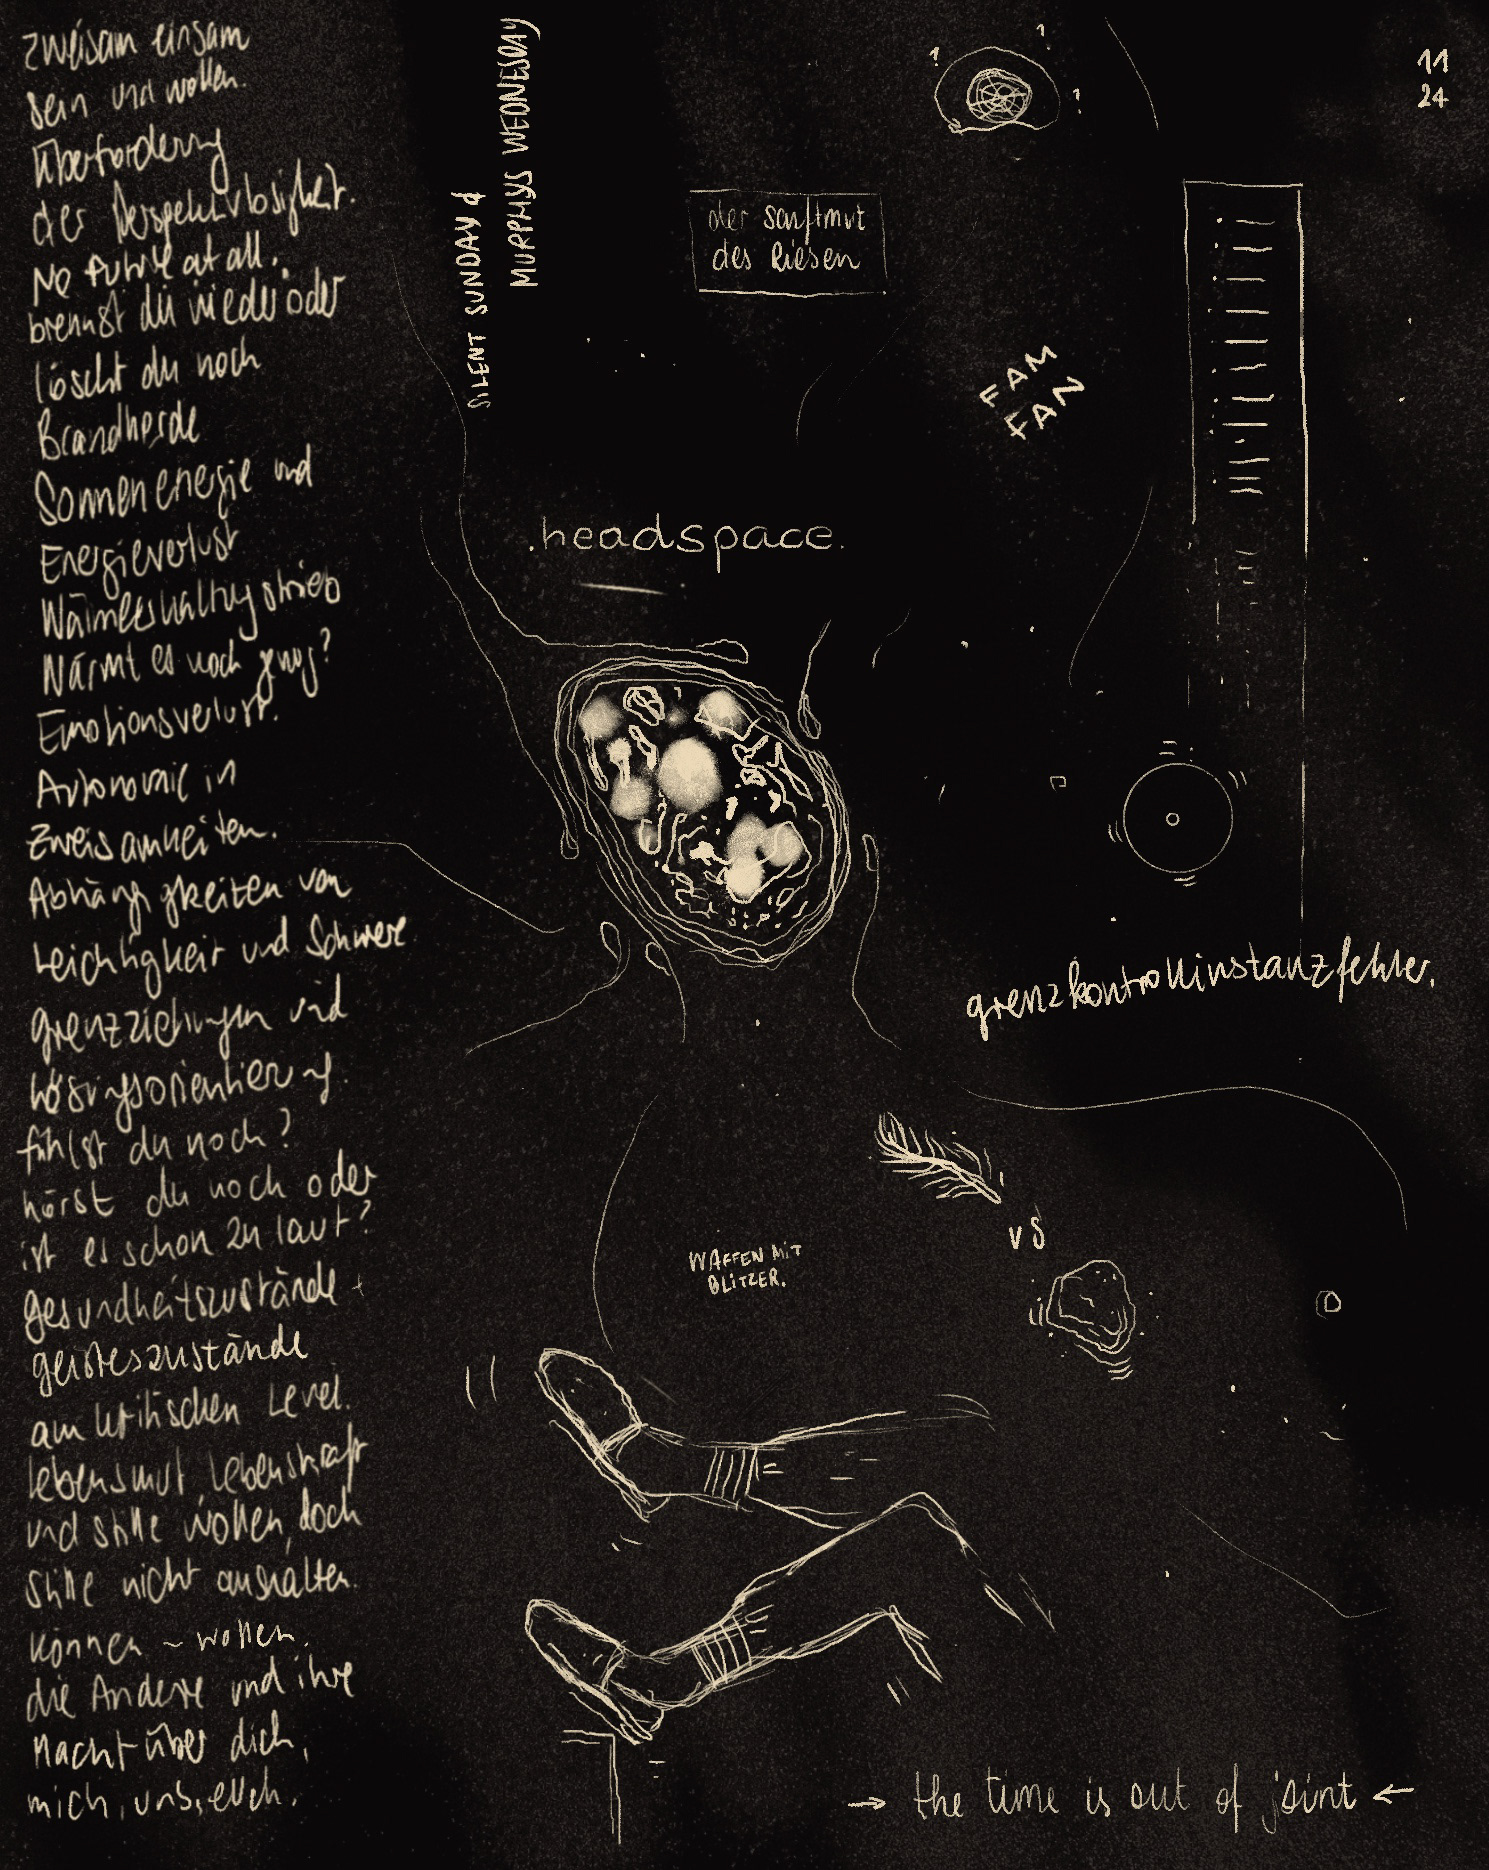 zweisam einsam
sein und wollen.
Überforderung
der Perspektivlosigkeit.
No future at all.
brennst du nieder oder
löschst du noch
Brandherde
Sonnenenergie und
Energieverlust
Wärmeerhaltungstrieb
Wärmt es noch genug?
Emotionsverlust.
Autonomie in
zweisamkeiten.
Abhängigkeiten von
Leichtigkeit und Schwere.
grenzziehungen und
Lösungsorientierung.
fühlst du noch?
hörst du noch oder
ist es schon zu laut?
gesundheitszustände +
geisteszustände
am kritischen Level.
lebensmut lebenskraft
und stille wollen, doch
stille nicht aushalten.
können ~ wollen.
die Andere und ihre
Macht über dich,
mich, uns, euch.
SILENT SUNDAY &
MURPHYS WEDNESDAY
der sanftmut
des Riesen
11
24
FAM
FAN
.headspace.
grenzkontrollinstanzfehler.
vs
WAFFEN MIT
BLITZER.
→ the time is out of joint ←